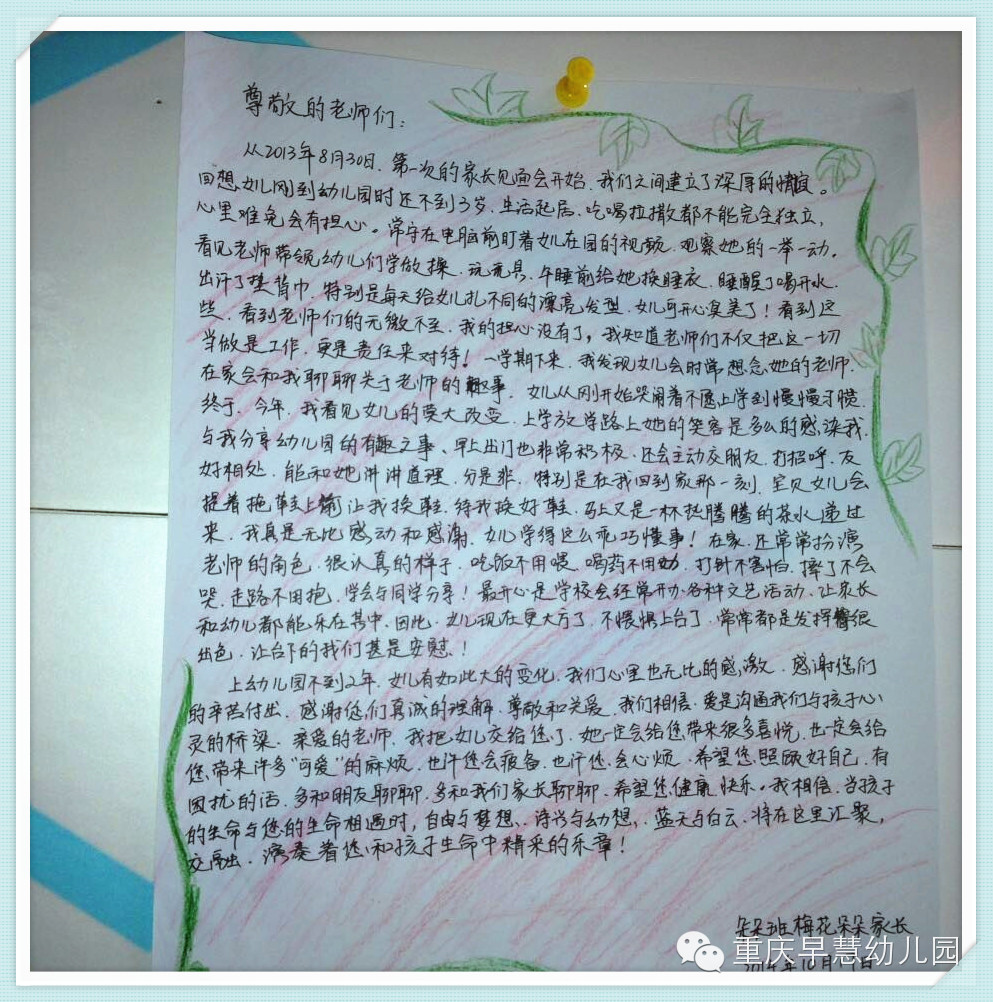 尊敬的老师们:
从2013年8月30日、第一次的家长见面会开始、我们之间建立了深厚的情谊。
回想女儿刚到幼儿园时还不到3岁、生活起居、吃喝拉撒都不能完全独立,
心里难免会有担心。常守在电脑前盯着女儿在园的视频、观察她的一举一动。
看见老师带领幼儿们学做操、玩玩具、午睡前给她换睡衣、睡醒了喝开水、
出汗了垫背巾、特别是每天给女儿扎不同的漂亮发型、女儿可开心臭美了!看到这
些、看到老师们的无微不至、我的担心没有了,我知道老师们不仅把这一切
当做是工作、更是责任来对待!一学期下来、我发现女儿会时常想念她的老师、
在家会和我聊聊关于老师的趣事、女儿从刚开始哭闹着不愿上学到慢慢习惯、
终于、今年、我看见女儿的莫大改变、上学放学路上她的笑容是多么的感染我、
与我分享幼儿园的有趣之事、早上出门也非常积极、还会主动交朋友、打招呼、友
好相处、能和她讲讲道理、分是非、特别是在我回到家那一刻、宝贝女儿会
提着拖鞋上前让我换鞋、待我换好鞋、马上又是一杯热腾腾的茶水递过
来、我真是无比感动和感谢、女儿学得这么乖巧懂事!在家、还常常扮演
老师的角色、很认真的样子、吃饭不用喂、喝药不用劝、打针不害怕、摔了不会
哭、走路不用抱、学会与同学分享!最开心是学校会经常开办各种文艺活动、让家长
和幼儿都能乐在其中、因此、女儿现在更大方了、不惧怕上台了、常常都是发挥得很
出色、让台下的我们甚是安慰、!
上幼儿园不到2年、女儿有如此大的变化、我们心里也无比的感激、感谢您们
的辛苦付出、感谢您们真诚的理解、尊敬和关爱、我们相信、爱是沟通我们与孩子心
灵的桥梁、亲爱的老师、我把女儿交给您了、她一定会给您带来很多喜悦、也一定会给
您带来许多“可爱”的麻烦、也许您会疲备、也许您会心烦、希望您照顾好自己、有
困扰的话、多和朋友聊聊、多和我们家长聊聊、希望您健康快乐。我相信、当孩子
的生命与您的生命相遇时,自由与梦想、诗兴与幻想、蓝天与白云、将在这里汇聚,
交融出、演奏着您和孩子生命中精采的乐章!
朵朵班梅花朵朵家长
2014年10月
重庆早慧幼儿园